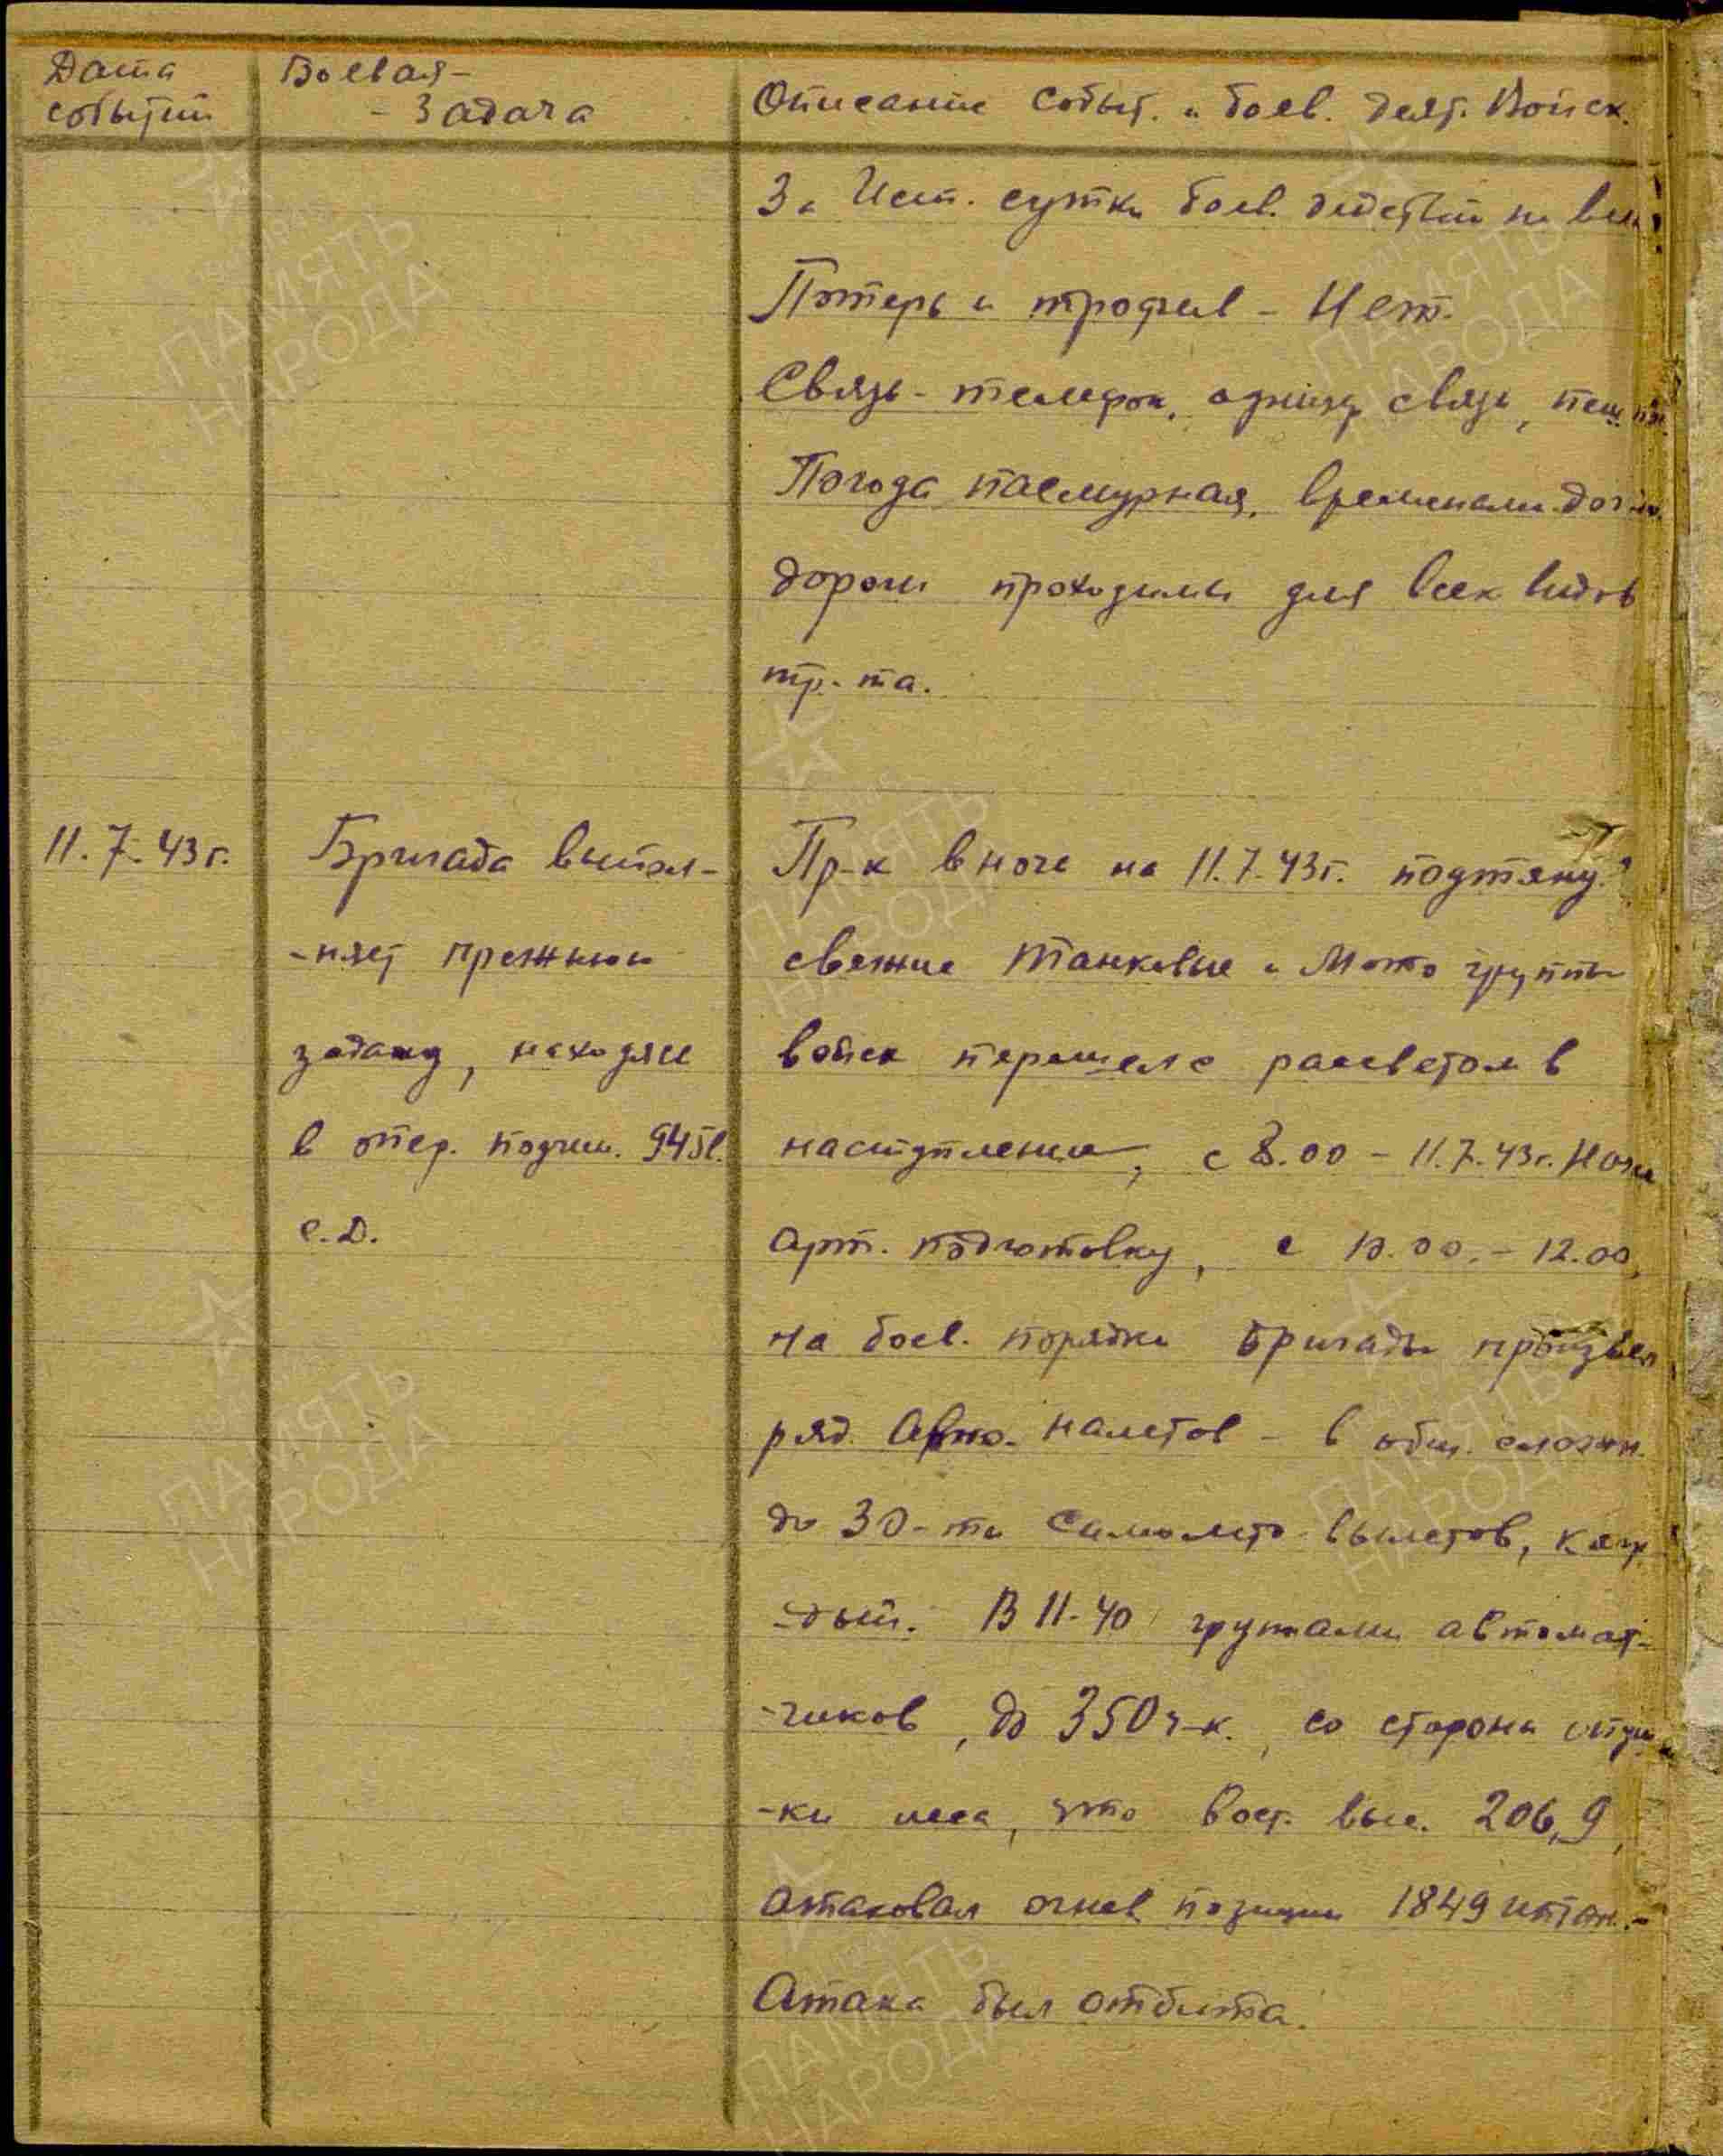 Дата
событий
Боевая-
- Задача
Описание событ. и боев. деят. Войск.
За Ист. сутки боев. действий не вел
Потерь и трофеев - Нет.
Связь - телефон, связь, пеш.
Погода пасмурная, временами дождь
дороги проходимы для всех видов
тр-та.
11.7.43г.
Бригада выпол-
-няет прежнюю
задачу, находясь
в опер. подчин. 94Гв.
с.д.
Пр-к в ночь на 11.7.43г. подтянул
свежие танковые и Мото группы
войск перешел с рассветом в
наступление, с 8.00 - 11.7.43г. Начал
арт. подготовку, с 10.00. - 12.00,
на боев. порядки Бригады произвел
ряд Авио. налетов - в общ. сложн.
до 30-ти самолето-вылетов, каж
-дый. В 11-40 группами автомат-
-чиков, до 350 ч-к., со стороны опуш
-ки леса, что Вост. выс. 206,9,
атаковал огнев. позиции 1849 иптап.-
Атака был отбита.
ПАМЯТЬ
НАРОДА
ПАМЯТЬ
НАРОДА
ПАМЯТЬ
НАРОДА
ПАМЯТЬ
НАРОДА
ПАМЯТЬ
НАРОДА
ПАМЯТЬ
НАРОДА